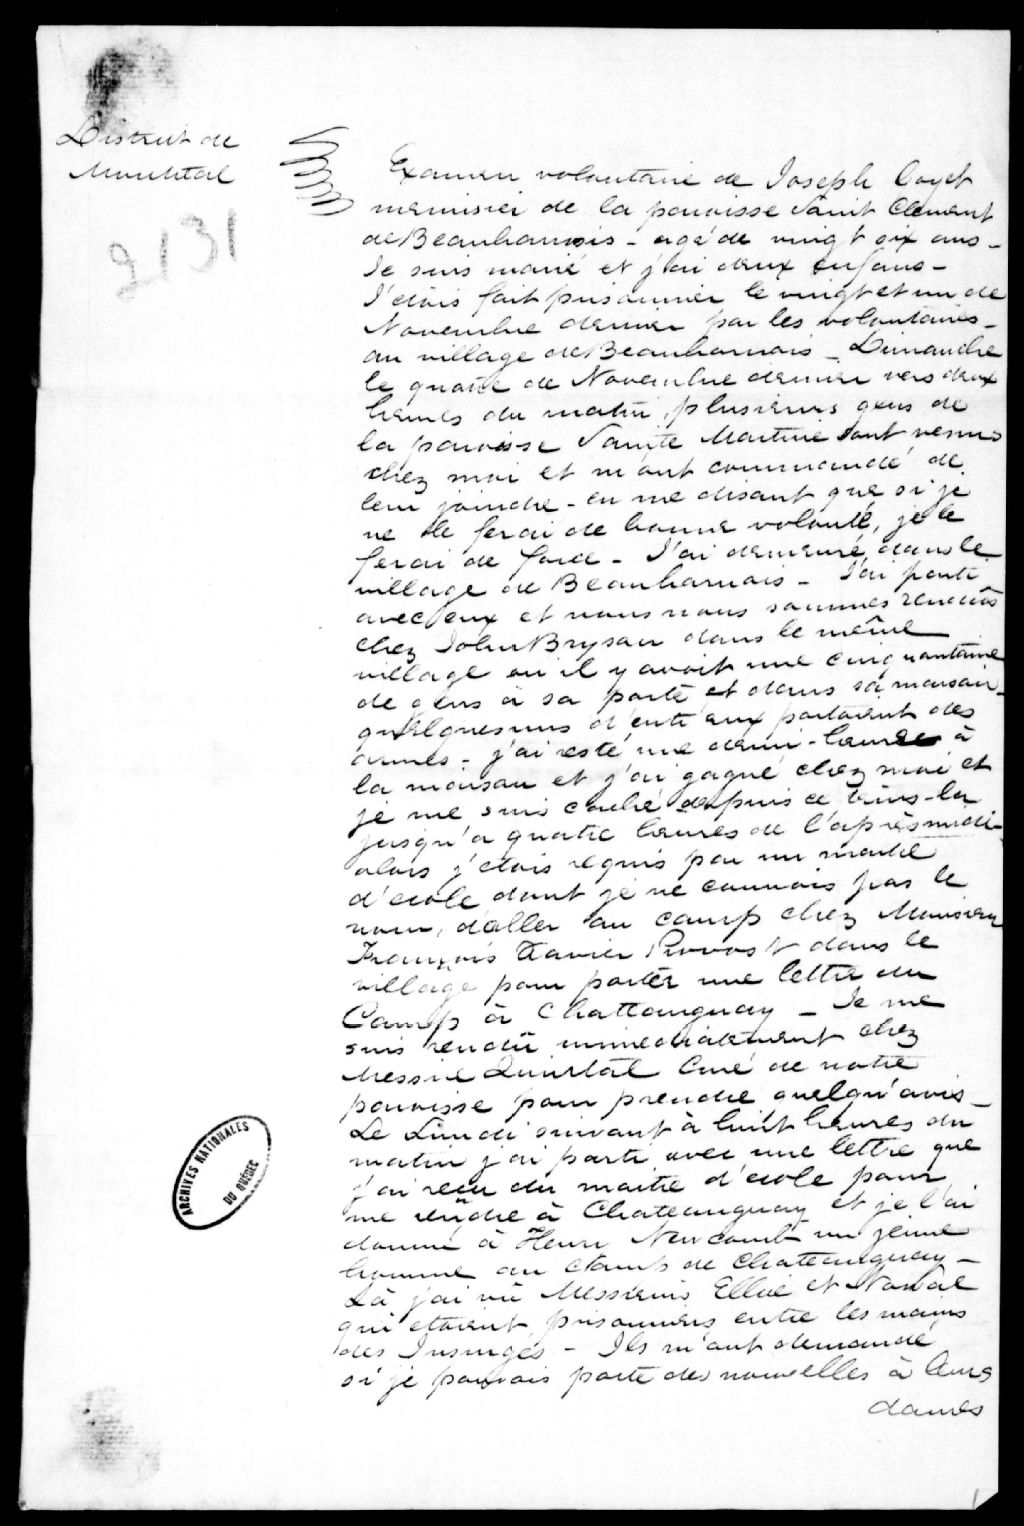 District de
Montréal
2131
Examen volontaire de Joseph Goyet
menuisier de la paroisse Saint Clement
de Beauharnois - agé de vingt six ans -
Je suis marié et j'ai deux enfans -
J'étais fait prisonnier le vingt et un de
Novembre dernier par les volontaires -
au village de Beauharnois - Dimanche
le quatre de Novembre dernier vers deux
heures du matin, plusieurs gens de
la paroisse Sainte Martine sont venus
chez moi et m'ont commandé de
leur joindre - en me disant que si je
ne le ferai de bonne volonté, je le
ferai de force - J'ai demeuré dans le
village de Beauharnais - J'ai parti
avec eux et nous nous sommes rendus
chez John Bryson dans le même
village où il y avoit une cinquantaine
de gens à sa porte et dans sa maison -
quelquesuns d'entr'eux portoient des
armes - j'ai resté une demi-heure à
la maison et j'ai gagné chez moi et
je me suis caché depuis ce tems-la
jusqu'a quatre heures de l'après midi -
alors j'etois requis par un maitre
d'école dont je ne connois pas le
nom, d'aller au camp chez Monsieur
François Xavier Provost dans le
village pour porter une lettre du
Camp à Chattauguay - Je me
suis rendu immediatement chez
Messire Quintal Curé de notre
paroisse pour prendre quelqu'avis -
Le Lundi suivant à huit heures du
matin j'ai parti avec une lettre que
j'ai reçu du maitre d'école pour
me rendre à Chateauguay et je l'ai
donné à Henri Newcomb un jeune
homme au Camp de Chateauguay -
Là j'ai vû Messieurs Ellice et Norval
qui etoient prisonniers entre les mains
des Insurgés - Ils m'ont demandé
si je pouvois porté des nouvelles à leurs
dames
ARCHIVES NATIONALES
DU QUÉBEC